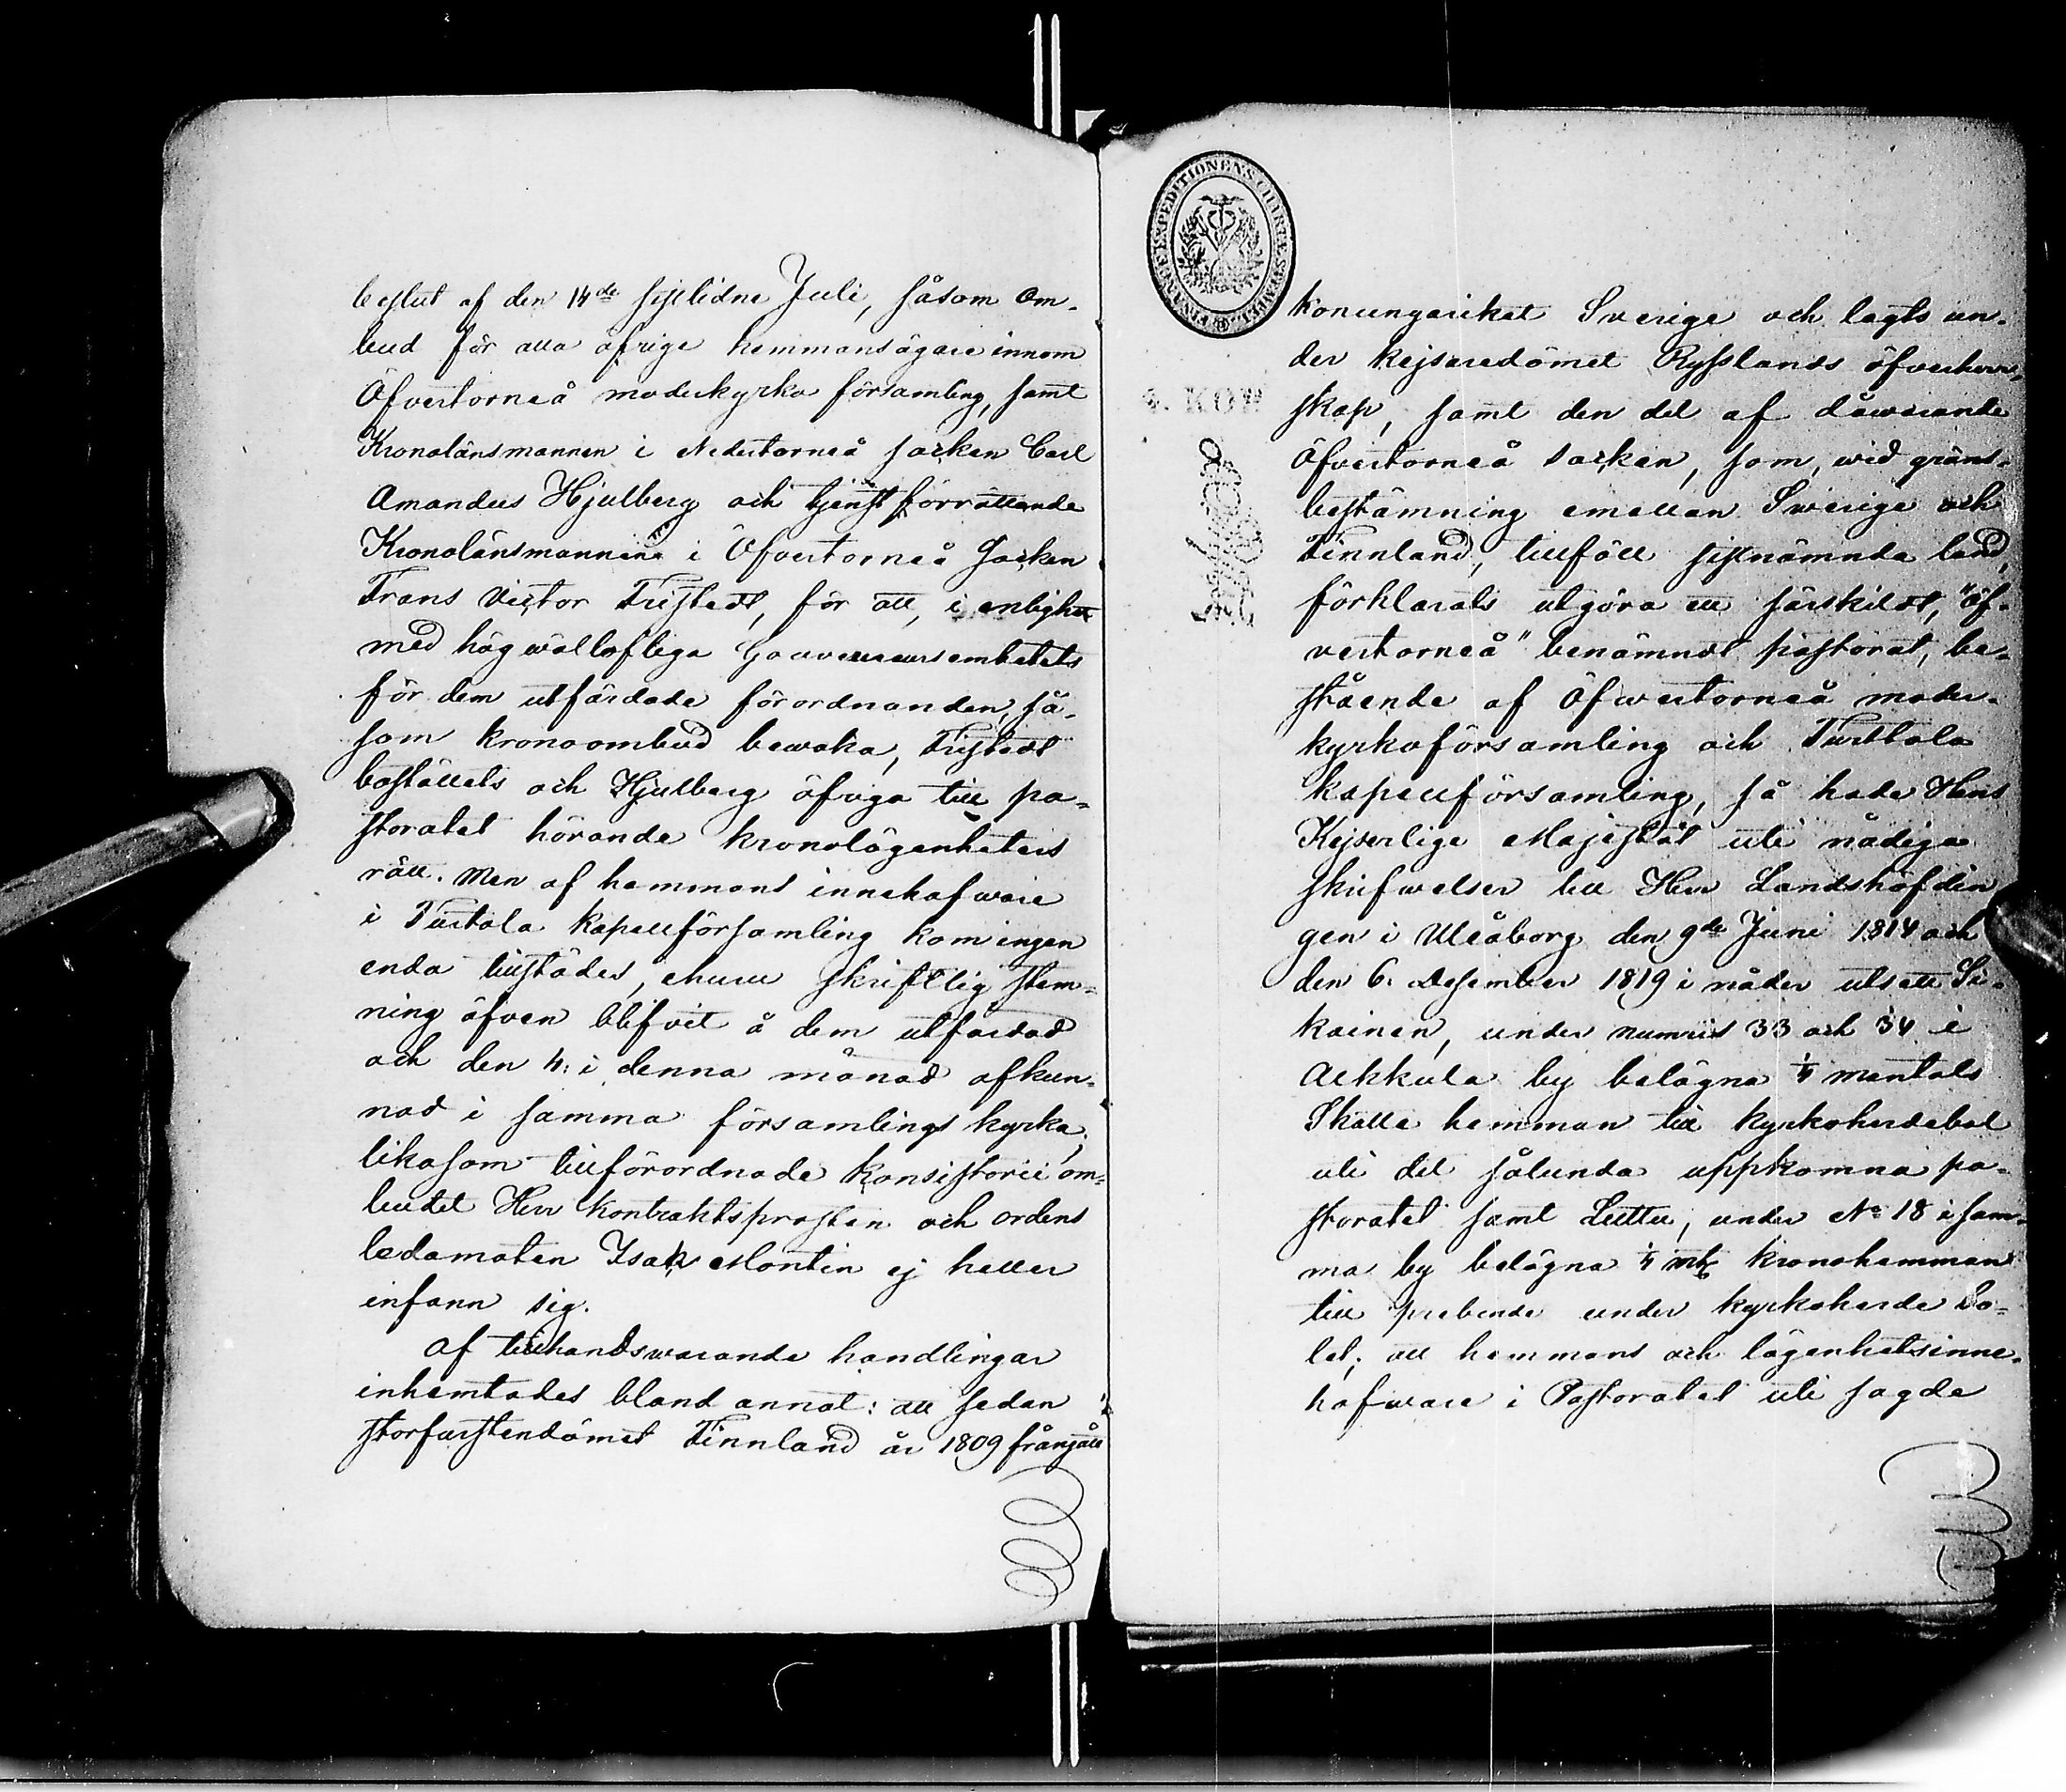 beslut af den 14de sistlidne Juli, såsom Om-
bud för alla öfrige hemmansägare innom
Öfvertorneå moderkyrko församling, samt
Kronolänsmannen i Nedertorneå socken Carl
Amandus Hjulberg och tjenstförrättande
Kronolänsmannen i Öfvertorneå Socken
Frans Victor Fristedt, för att, i enlighet
med högwälloflige Gouverneursembetets
för dem utfärdade förordnanden, så-
som kronoombud bewaka, Fristedt
boställets och Hjulberg öfriga till pa-
storatet hörande kronolägenheters
rätt. Men af hemmans innehafware
i Turtola kapellförsamling kom ingen
enda tillstädes, ehuru skriftlig stem-
ning äfven blifvit å dem utfärdad
och den 4: i denna månad afkun-
nad i samma församlings kyrka,
likasom tillförordnade konsistorii om-
budet Herr Kontraktsprosten och ordens
ledamoten Isak Montin ej heller
infann sig.
Af tillhandswarande handlingar
inhemtades bland annat: att sedan
storfurstendömet Finnland år 1809 frångått
FINANCE EXPEDITIONENS CHARTÆ STÄMPEL
konungariket Sverige och lagts un-
der kejsaredömet Rysslands öfverherr-
4. KOP.
skap, samt den del af dåwarande
Öfvertorneå socken, som, wid gräns-
bestämning emellan Sverige och
Finnland, tillföll sistnämnda land,
förklarats utgöra ett särskildt, "Öf-
vertorneå" benämndt pastorat, be-
stående af Öfwertorneå moder-
kyrkoförsamling och Turtola
kapellförsamling, så hade Hans
Kejserlige Majestät uti nådiga
skrifwelser till Herr Landshöfdin
gen i Uleåborg den 9de Juni 1814 och
den 6. December 1819 i nåder utsett Si-
kainen, under numris 33 och 34 i
Alkkula by belägna 1/4 mantals
Skatte hemman till kyrkoherdebol
uti det sålunda uppkomna pa-
storatet samt Luttu, under No 18 i sam-
ma by belägna 1/4 mtl kronohemman
till prebende under kyrkoherde bo-
let; att hemmans och lägenhetsinne-
hafware i Pastoratet uti sagde